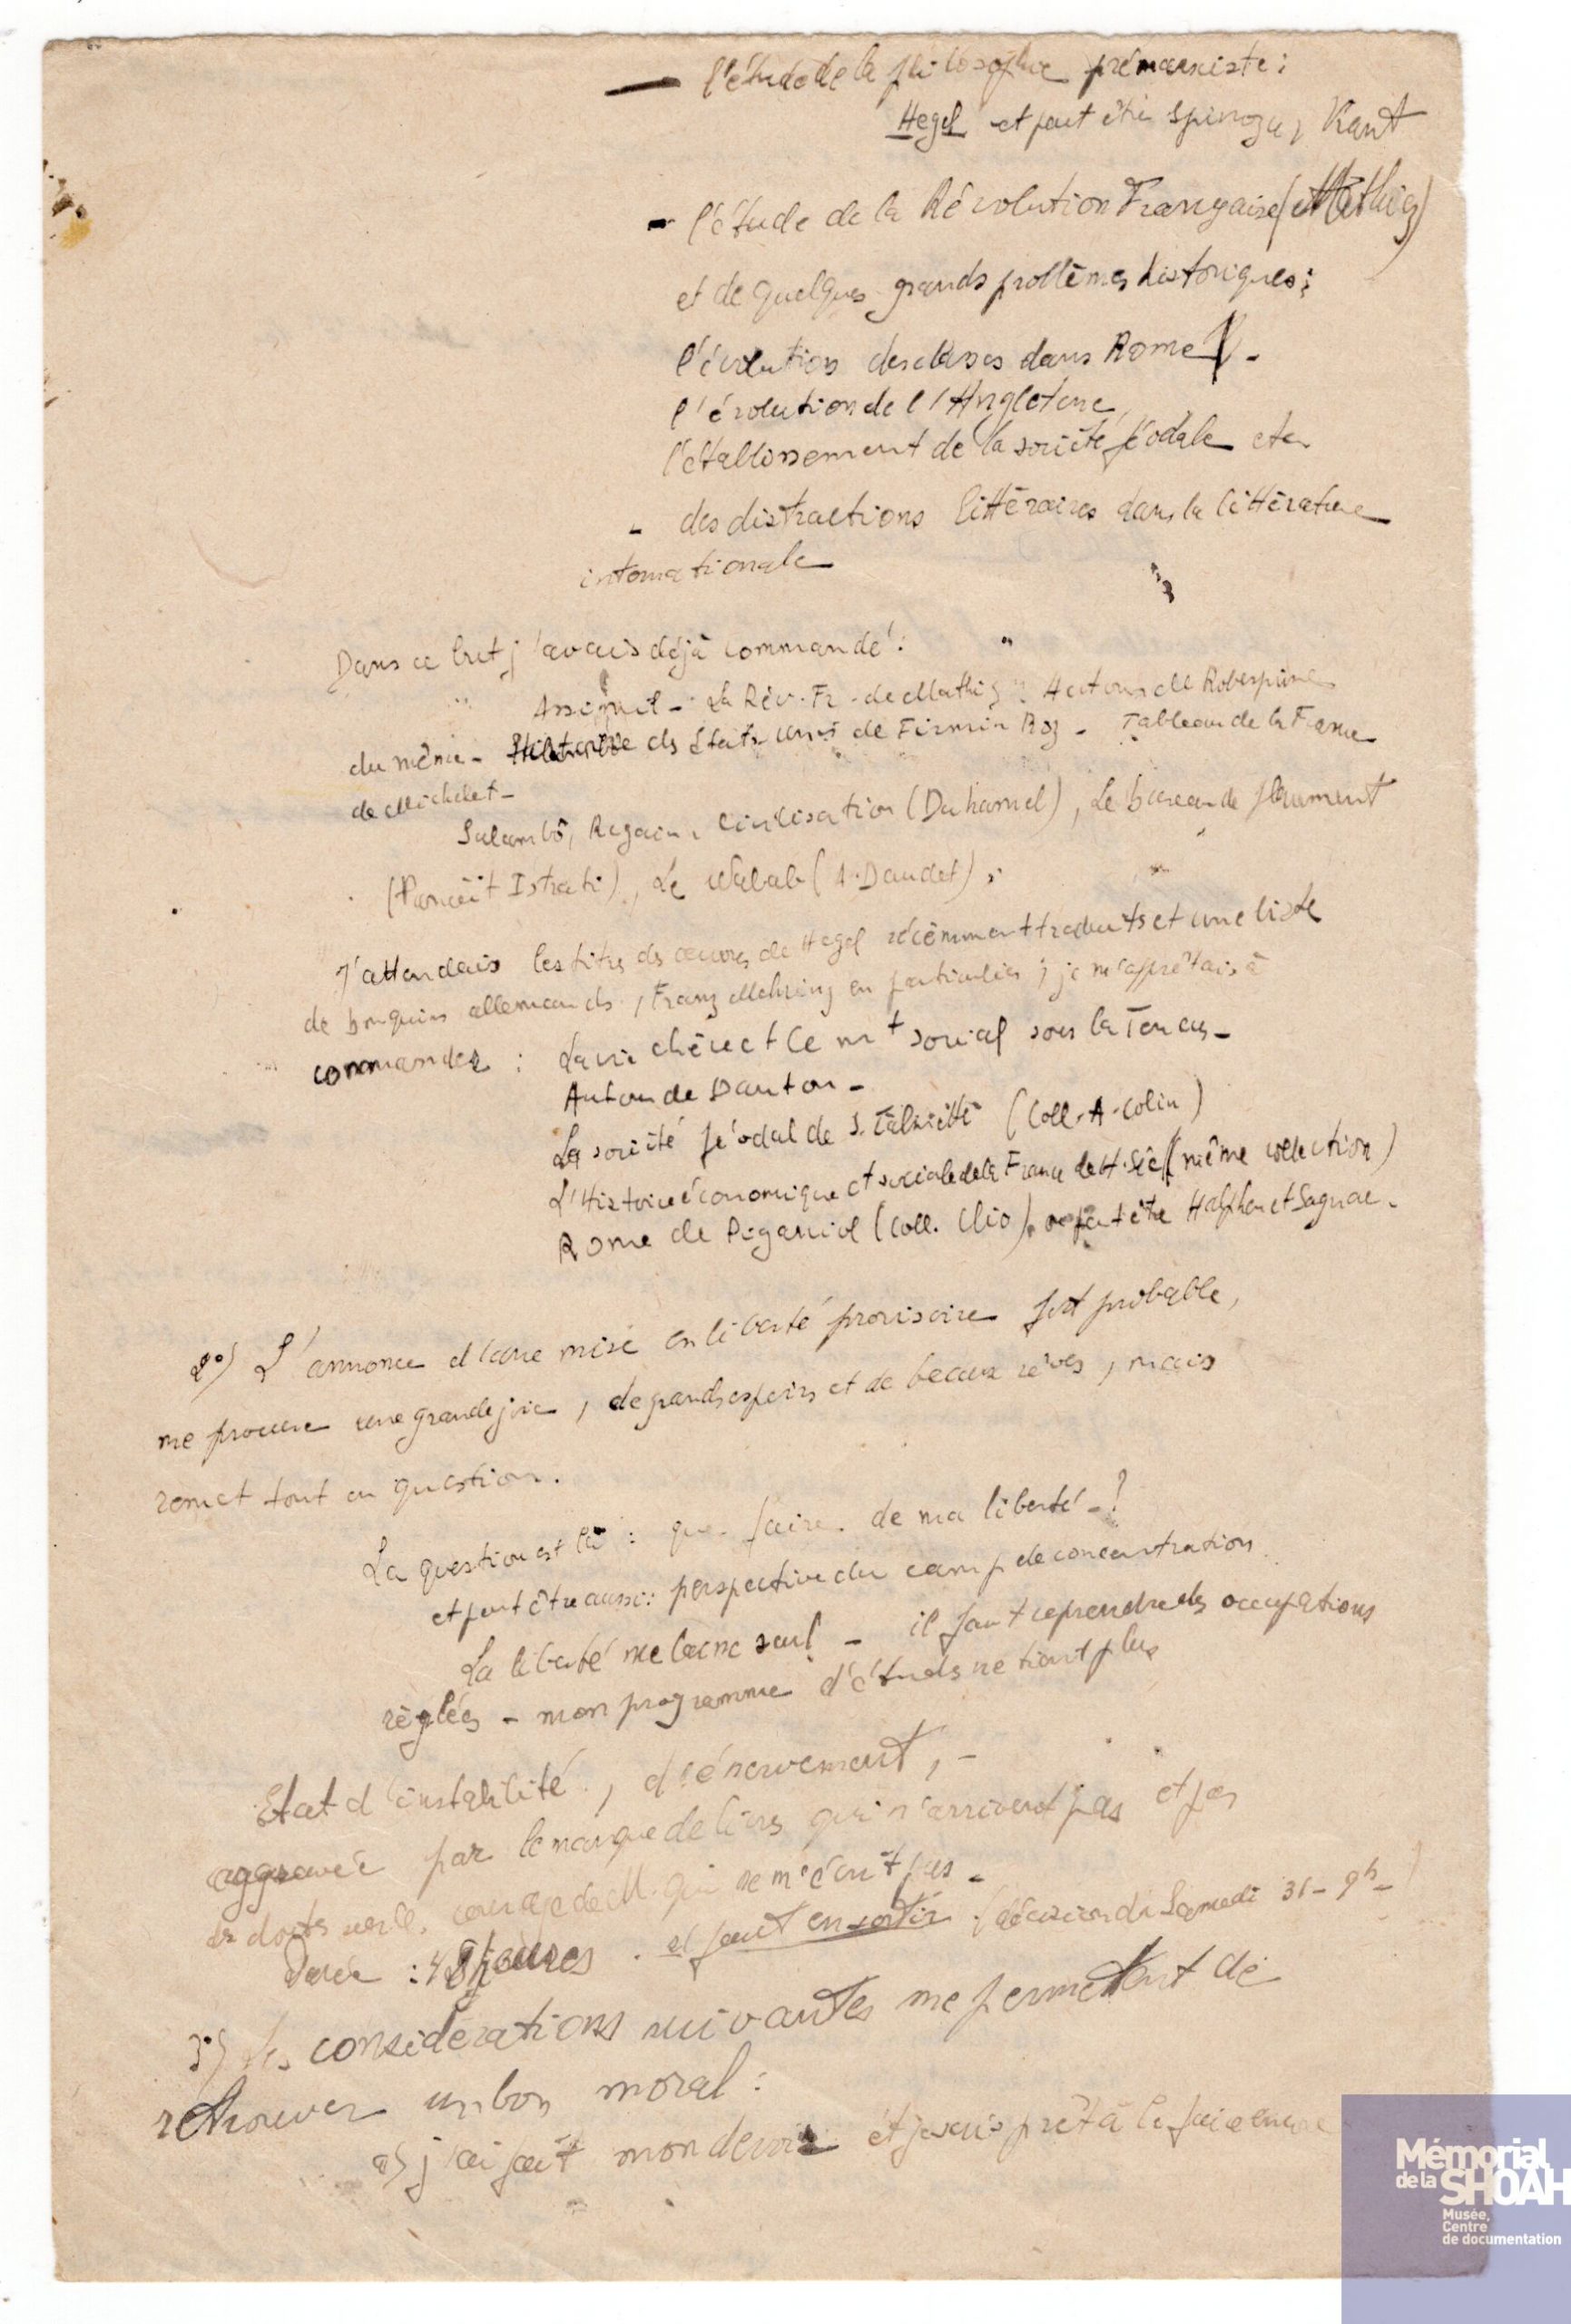 — l'étude de la philosophie prémarxiste :
Hegel et peut être Spinoza, Kant
- l'étude de la Révolution Française (Mathiez)
et de quelques grands problèmes historiques :
l'évolution des classes dans Rome -
l'évolution de l'Angleterre,
l'établissement de la société féodale etc
- des distractions littéraires dans la littérature
internationale
Dans ce but j'avais déjà commandé :
Assimil - La Rév. Fr. de Mathiez - Autour de Robespierre
du même - Histoire des États unis de Firmin Roz - Tableau de la France
de Michelet -
Salambô, Regain, Civilisation (Duhamel), Le bureau de placement
(Panaït Istrati), Le Nabab (A. Daudet).
J'attendais les titres des œuvres de Hegel récemment traduits et une liste
de bouquins allemands, Franz Mehring en particulier ; je m'apprêtais à
commander : La vie chère et le mt social sous la Terreur -
Autour de Danton -
La société féodal de J. Calmette (Coll. A. Colin)
L'Histoire économique et sociale de la France de H. Sée (même collection)
Rome de Piganiol (Coll. Clio), peut être Halphen et Sagnac.
2°) L'annonce d'une mise en liberté provisoire fort probable,
me procure une grande joie, de grands espoirs et de beaux rêves, mais
remet tout en question.
La question est là : que faire de ma liberté - ?
et peut être aussi : perspective du camp de concentration
La liberté me laisse seul - il faut reprendre des occupations
réglées - mon programme d'études ne tient plus
Etat d'instabilité, d'énervement, -
aggravée par le manque de livres qui n'arrivent pas et par
des doutes sur le courage de M. qui ne m'écrit pas -
Durée : jours. il faut en sortir (décision du Samedi 31 - 9h -)
3°) Les considérations suivantes me permettent de
retrouver un bon moral :
a) j'ai fait mon devoir et je suis prêt à le faire encore
Mémorial
de la SHOAH
Musée,
Centre
de documentation